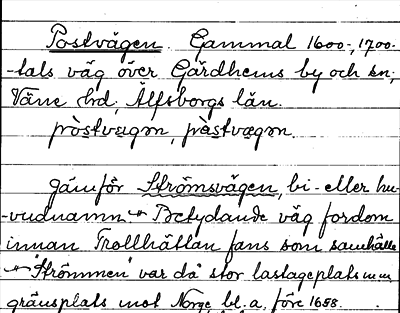 Postvägen. Gammal 1600-, 1700-
-tals väg över Gärdhems by och sn,
Väne hd, Älfsborgs län.
pròstvægən, pràstvægən.
jämför Strömsvägen, bi- eller hu-
-vudnamn. Betydande väg fordom
innan Trollhättan fans som samhälle
"Strömmen" var då stor lastageplats m.m.
gränsplats mot Norge, bl.a. före 1658.